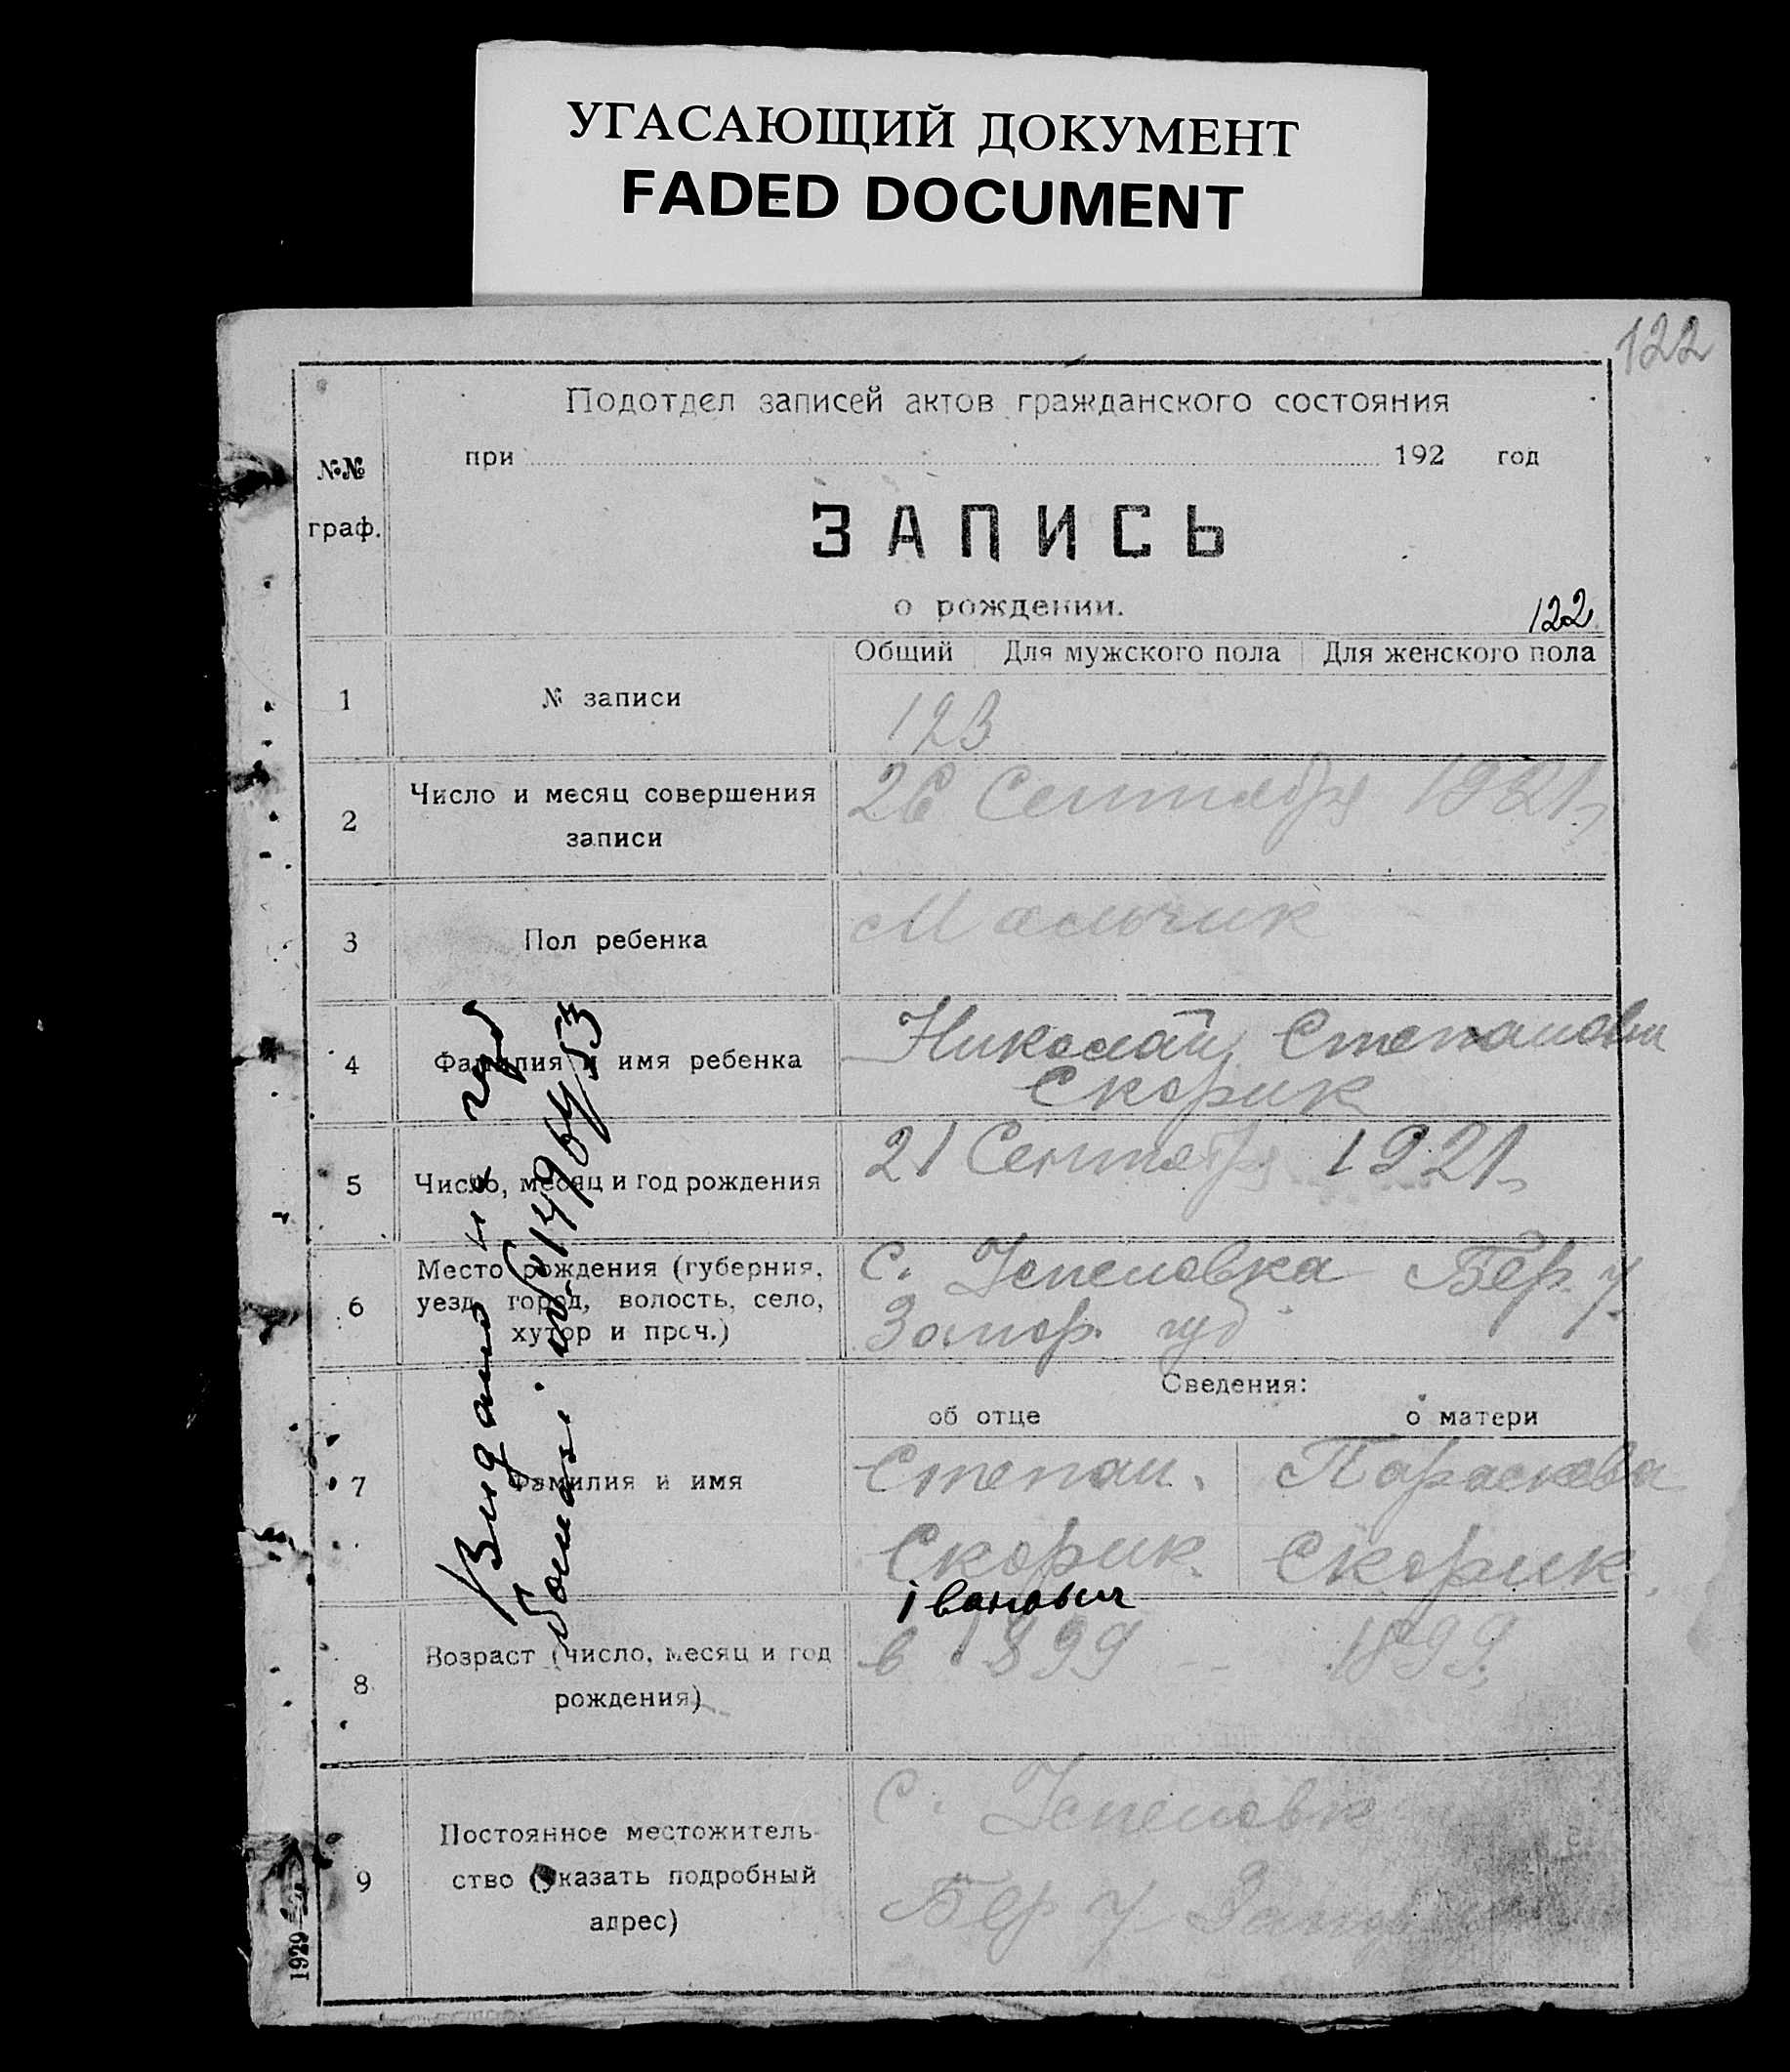 УГАСАЮЩИЙ ДОКУМЕНТ
FADED DOCUMENT
122
Подотдел записей актов гражданского состояния
№№
граф.
при 192 год
ЗАПИСЬ
о рождении.
122
Общий Для мужского пола Для женского пола
1 № записи 123
2 Число и месяц совершения
записи
26 Сентября 1921
3 Пол ребенка Мальчик
4 Фамилия и имя ребенка
Николай Степанови
Скорик
5 Число, месяц и год рождения 21 Сентября 1921
6 Место рождения (губерния,
уезд, город, волость, село,
хутор и проч.)
С. Бер. у.
Запор. губ
Сведения:
об отце о матери
7 Фамилия и имя
Степан. Параскева
Скорик. Скорик
івановыч
8 Возраст (число, месяц и год
рождения)
в 1899 - 1899
9 Постоянное местожитель-
ство (указать подробный
адрес)
С.
Бер у Запор
1929